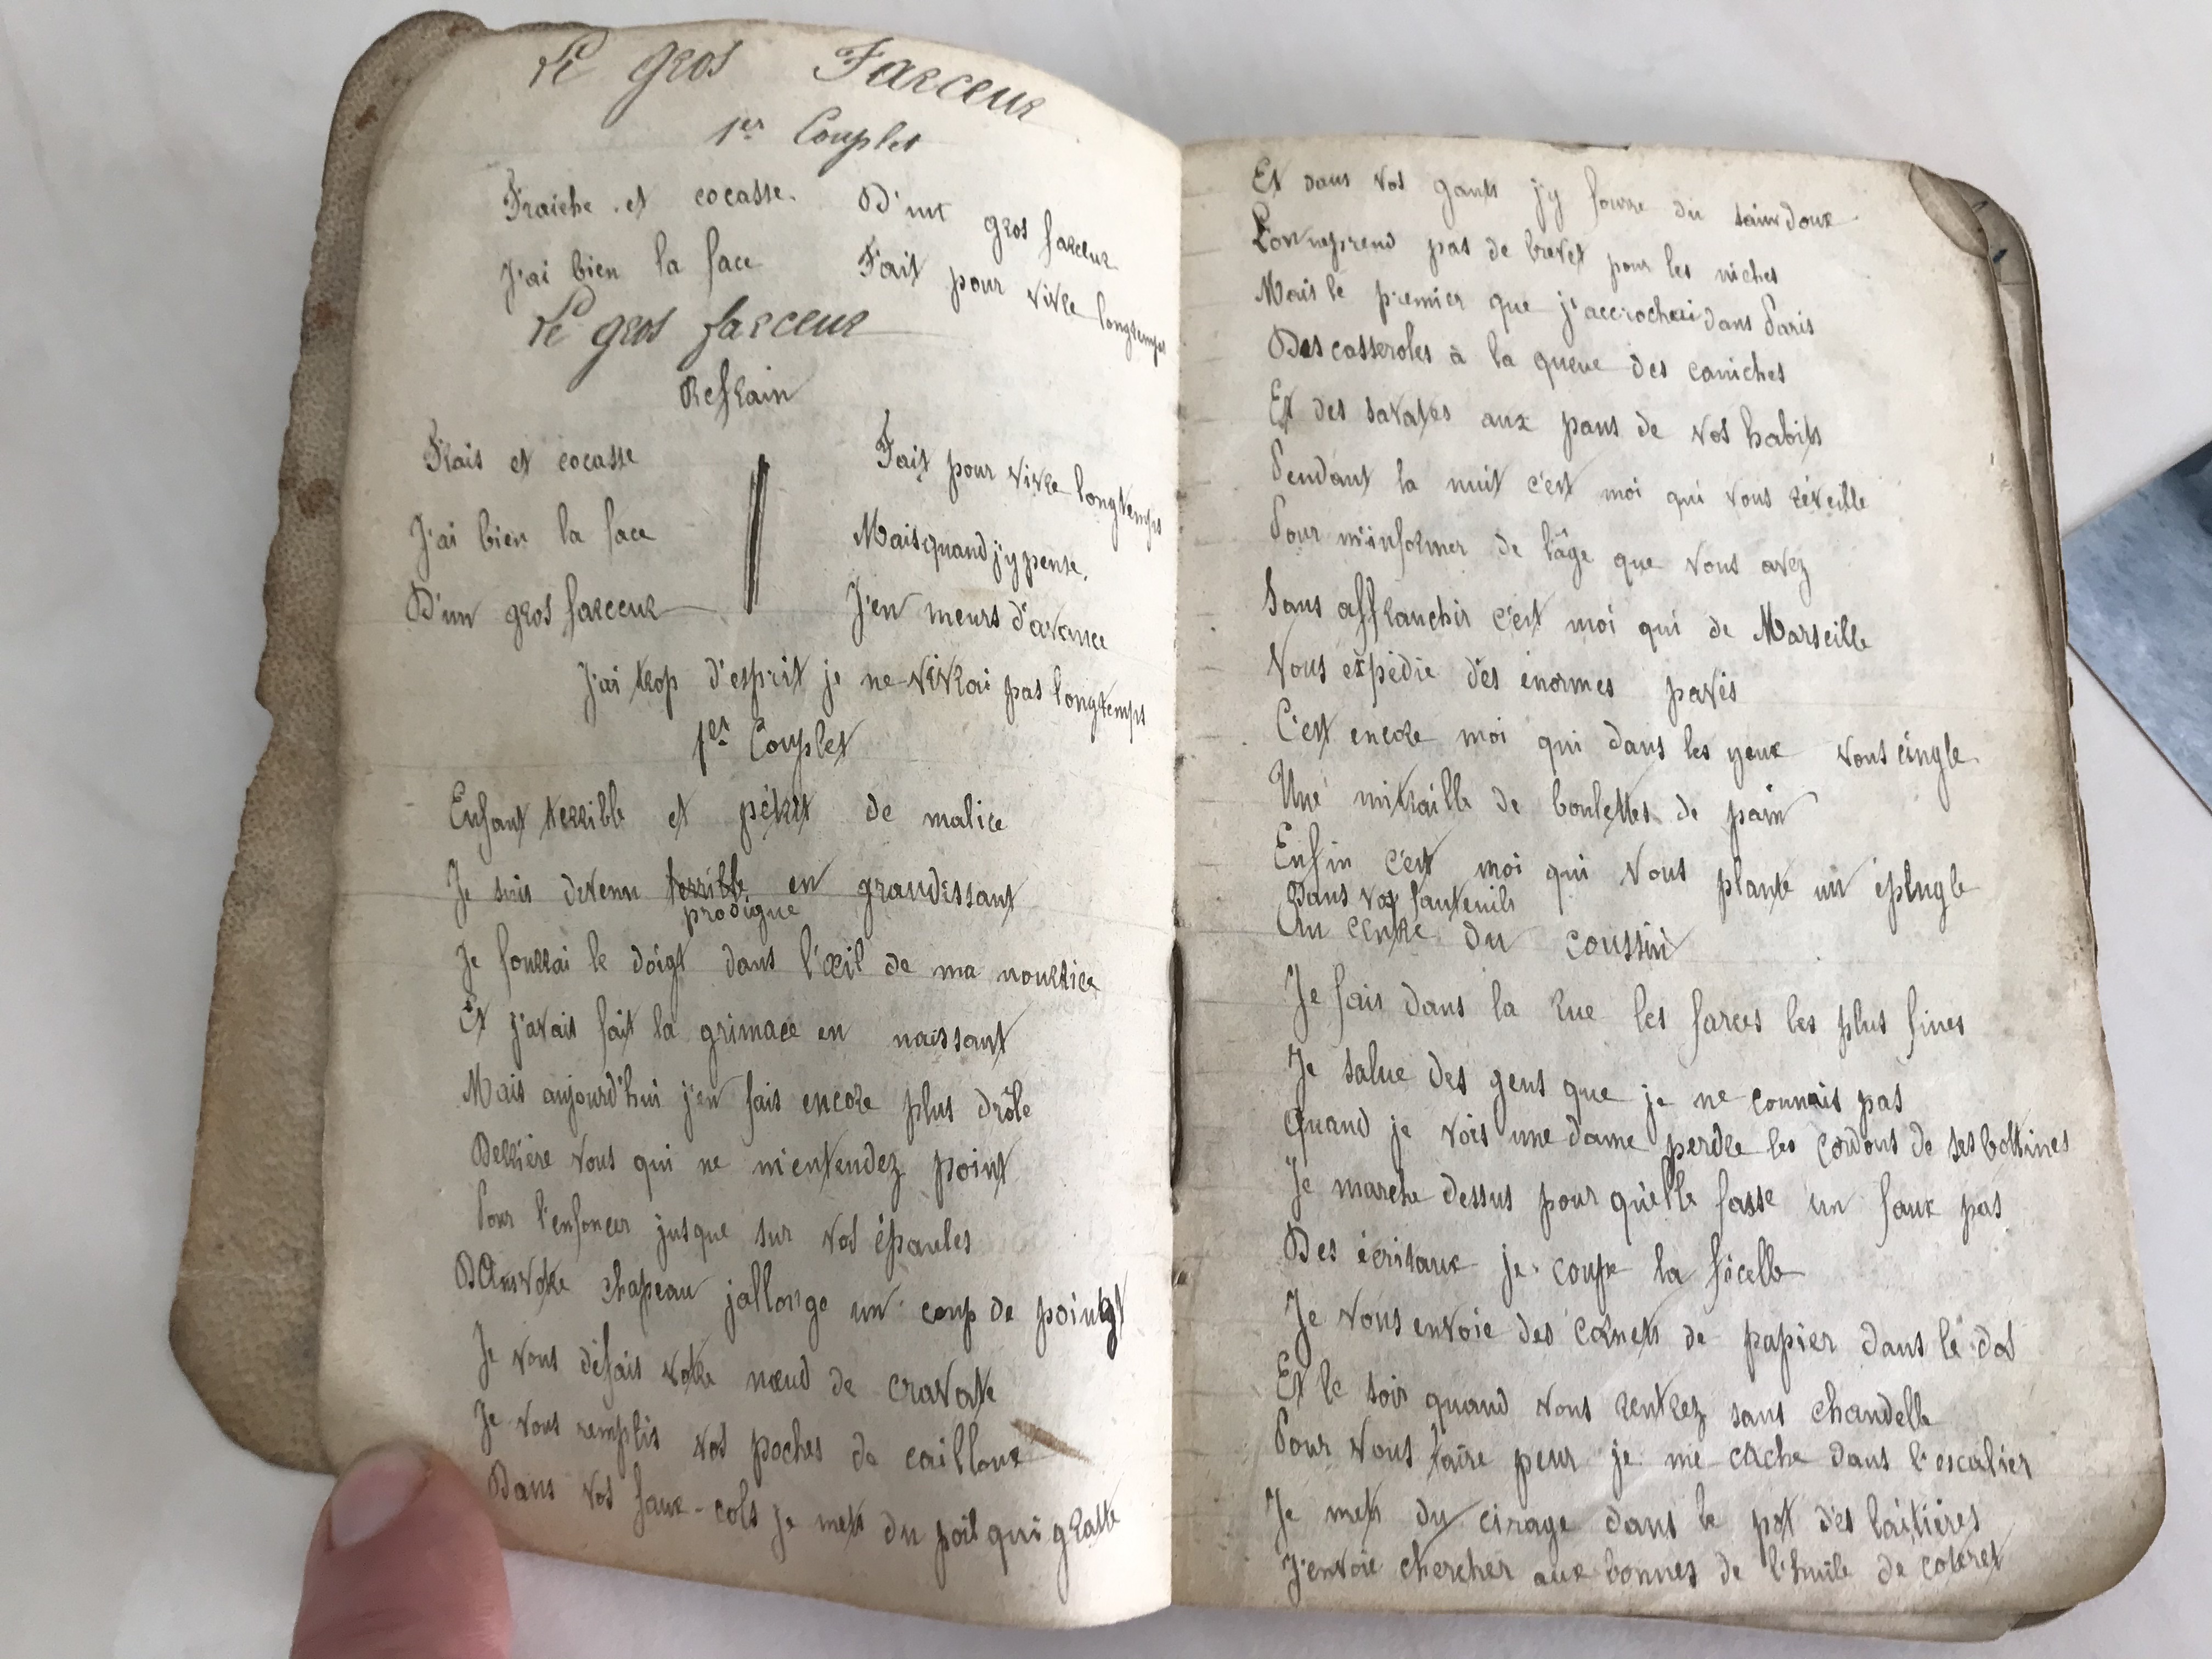 Le gros Farceur
1er Couplet
Fraiche et cocasse. D'un gros farceur
J'ai bien la face Fait pour vivre longtemps
Le gros farceur
Refrain
Frais et cocasse
J'ai bien la face
D'un gros farceur
Fait pour vivre longtemps
Mais quand j'y pense.
J'en meurs d'avance
J'ai trop d'esprit je ne vivrai pas longtemps
1er Couplet
Enfant terrible et pétrit de malice
Je suis devenu terrible en grandissant
prodigue
Je fourrai le doigt dans l'œil de ma nourrice
Et j'avais fait la grimace en naissant
Mais aujourd'hui j'en fais encore plus drôle
Derrière vous qui ne m'entendez point
Pour l'enfoncer jusque sur vos épaules
Dans votre chapeau jallonge un coup de poingt
Je vous défais votre nœud de cravate
Je vous remplis vos poches de cailloux
Dans vos faux-cols je mets du poil qui gratte
Et dans vos gants jy fourre du saindoux
L'on neprend pas de brevet pour les niches
Mais le premier que j'accrochai dans Paris
Des casseroles à la queue des caniches
Et des savates aux pans de vos habits
Pendant la nuit c'est moi qui vous réveille
Pour m'informer de l'âge que vous avez
Sans affranchir c'est moi qui de Marseille
Vous expédie des énormes pavés
C'est encore moi qui dans les yeux vous cingle
Une mitraille de boulettes de pain
Enfin c'est moi qui vous plante un épingle
Dans vos fauteuils
Au centre du coussin
Je fais dans la rue les farces les plus fines
Je salue des gens que je ne connais pas
Quand je vois une dame perdre les cordons de ses bottines
Je marche dessus pour qu'elle fasse un faux pas
Des écritaux je coupe la ficelle
Je vous envoie des cornets de papier dans le dos
Et le soir quand vous rentrez sans chandelle
Pour vous faire peur je me cache dans l'escalier
Je mets du cirage dans le pot des laitières
J'envoie chercher aux bonnes de l'huile de coteret